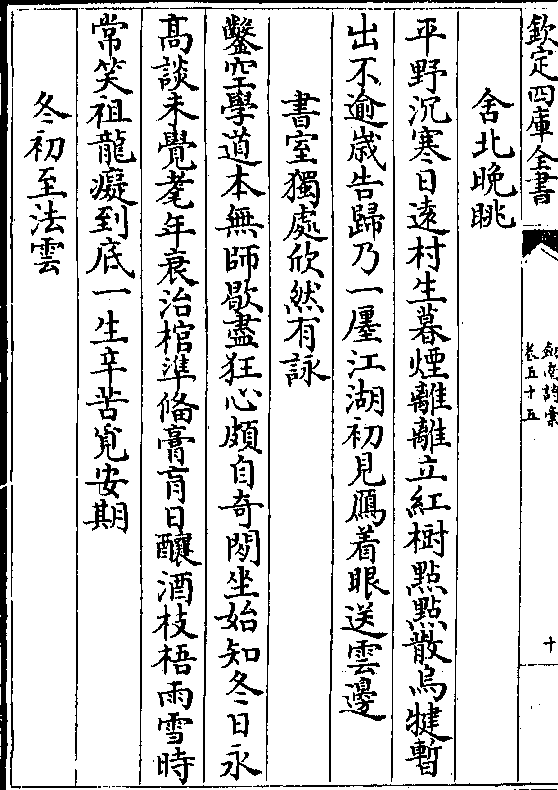 欽定四庫全書
劍南詩槀
卷五十五
十
舍北晚眺
平野沉寒日逺村生暮煙離離立紅樹點點散烏犍暫
出不逾歲告歸乃一廛江湖初見鴈着眼送雲邊
書室獨處欣然有詠
鑿空學道本無師歇盡狂心頗自奇閱坐始知冬日永
髙談未覺耄年衰治棺準備膏肓日釀酒枝梧雨雪時
常笑祖龍癡到底一生辛苦覓安期
冬初至法雲